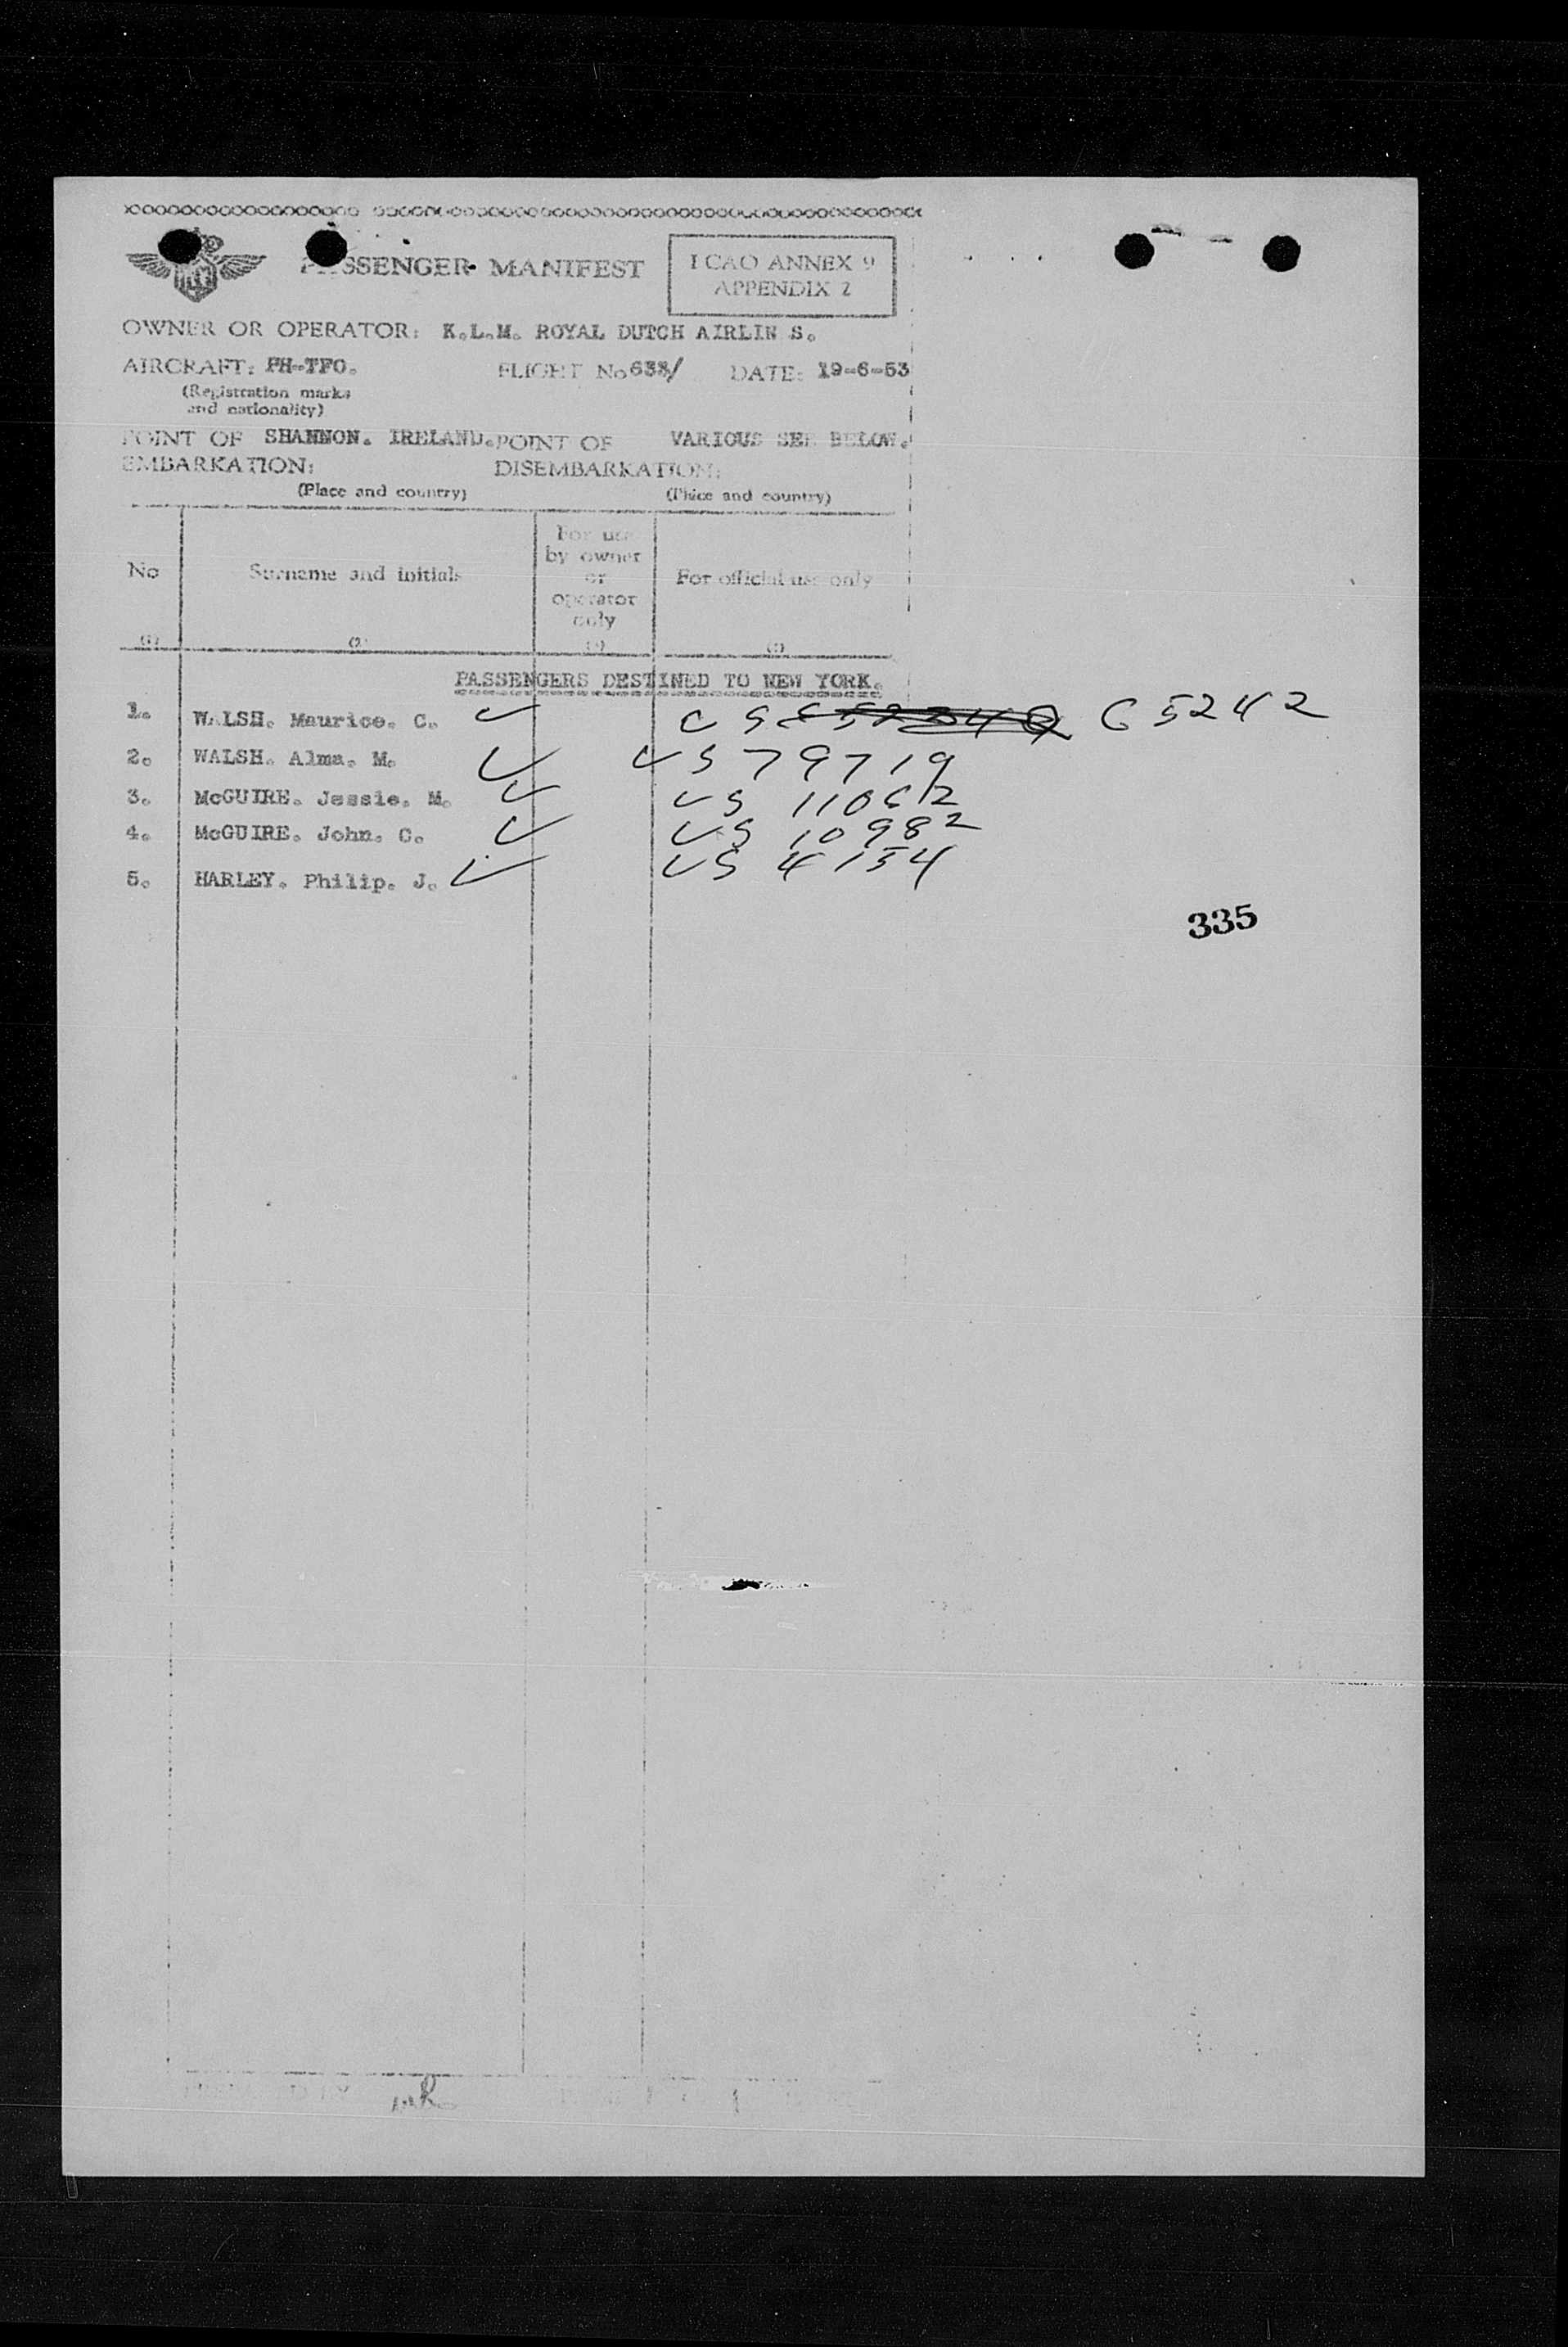 PASSENGER MANIFEST
ICAO ANNEX 9
APPENDIX 2
OWNER OR OPERATOR: K.L.M. ROYAL DUTCH AIRLIN S.
AIRCRAFT: PH-TFO. FLIGHT No 633/ DATE: 19-6-53
(Registration marks
and nationality)
POINT OF SHANNON. IRELAND. POINT OF VARIOUS SEE BELOW.
EMBARKATION: DISEMBARKATION:
(Place and country) (Place and country)
No Surname and initials For use by owner or operator only For official use only
(1) (2) (3) (4)
PASSENGERS DESTINED TO NEW YORK.
1. WALSH. Maurice. C. US 65242
2. WALSH. Alma. M. US 79719
3. McGUIRE. Jessie. M. US 11062
4. McGUIRE. John. C. US 10982
5. HARLEY. Philip. J. US 4154
335